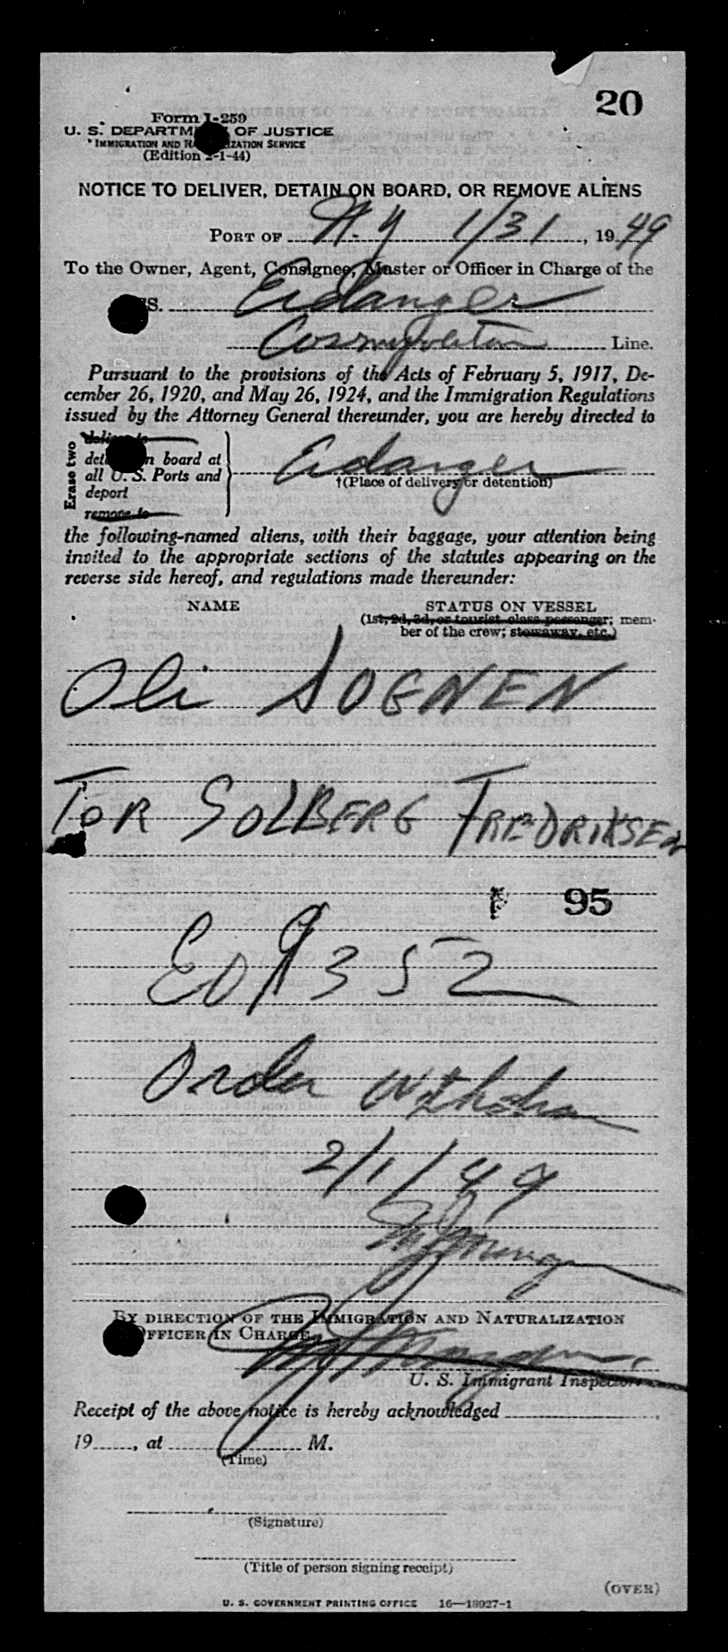 20
Form I-259
U. S. DEPARTM OF JUSTICE
IMMIGRATION AND NA IZATION SERVICE
(Edition 2-1-44)
NOTICE TO DELIVER, DETAIN ON BOARD, OR REMOVE ALIENS
PORT OF N. Y 1/31, 1949
To the Owner, Agent, Consignee, Master or Officer in Charge of the
SS. Erdanger
Cosmopolitan Line.
Pursuant to the provisions of the Acts of February 5, 1917, De-
cember 26, 1920, and May 26, 1924, and the Immigration Regulations
issued by the Attorney General thereunder, you are hereby directed to
Erase two
deliver to
det n board at
all U. S. Ports and
deport
remove to
Erdanger
†(Place of delivery or detention)
the following-named aliens, with their baggage, your attention being
invited to the appropriate sections of the statutes appearing on the
reverse side hereof, and regulations made thereunder:
NAME STATUS ON VESSEL
(1st, 2d, 3d, or tourist class passenger; mem-
ber of the crew; stowaway, etc.)
Oli SOGNEN
TOR SOLBERG FREDRIKSEN
95
352
Order Withdrawn
2/1/49
BY DIRECTION OF THE IMMIGRATION AND NATURALIZATION
OFFICER IN CHARGE
U. S. Immigrant Inspector.
Receipt of the above notice is hereby acknowledged
19, at M.
(Time)
(Signature)
(Title of person signing receipt)
(OVER)
U. S. GOVERNMENT PRINTING OFFICE 16—18927-1